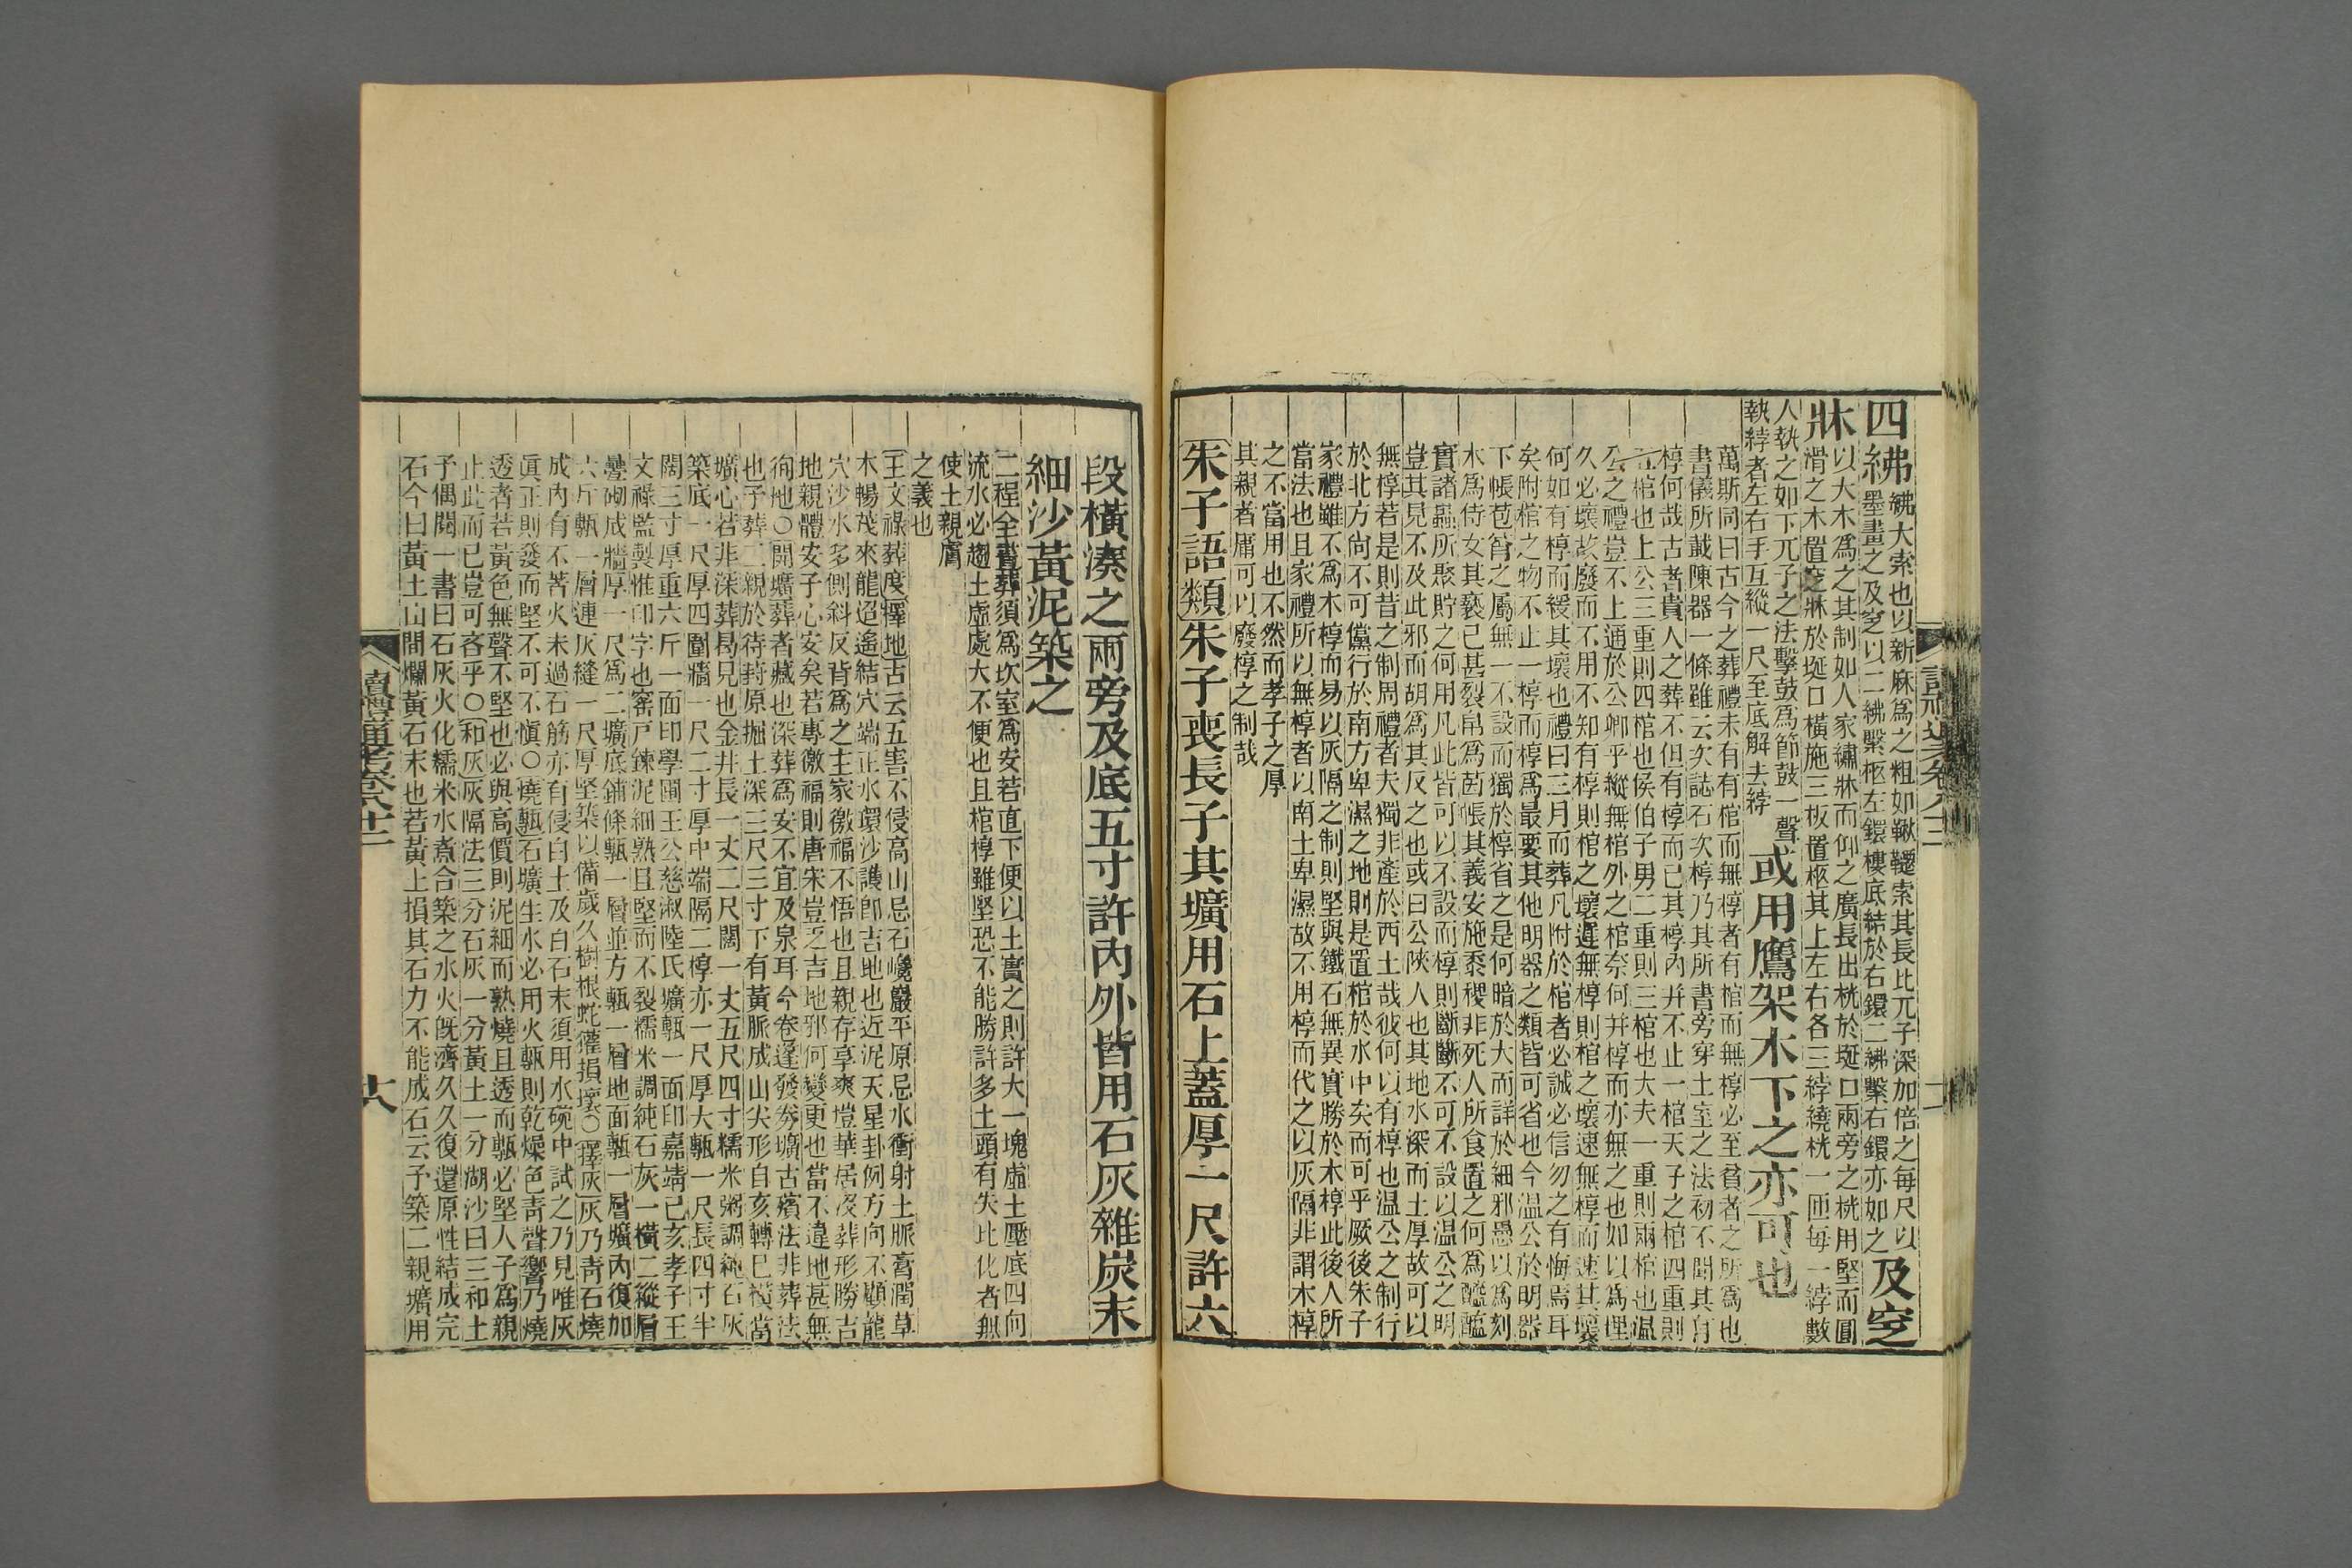 四紼紼大索也以新麻爲之粗如鞦韆索其長比兀子深加倍之每尺以
墨畫之及窆以二紼繫柩左鐶㯏底結於右鐶二紼繫右鐶亦如之及窆
牀以大木爲之其制如人家繡牀而仰之廣長出桄於埏口兩旁之桄用堅而圓
滑之木置窆牀於埏口橫施三板置柩其上左右各三綍繞桄一匝每一綍數
人執之如下兀子之法擊鼓爲節鼓一聲
執綍者左右手互縱一尺至底解去綍或用鷹架木下之亦可也
萬斯同曰古今之葬禮未有有棺而無椁者有棺而無椁必至貧者之所爲也
書儀所載陳器一條雖云次誌石次椁乃其所書旁穿土室之法初不聞其有
椁何哉古者貴人之葬不但有椁而已其椁內并不止一棺天子之棺四重則
五棺也上公三重則四棺也侯伯子男二重則三棺也大夫一重則兩棺也溫
公之禮豈不上通於公卿乎縱無棺外之棺奈何并椁而亦無之也如以爲埋
久必壞故廢而不用不知有椁則棺之壞遲無椁則棺之壞速無椁而速其壞
何如有椁而緩其壞也禮曰三月而葬凡附於棺者必誠必信勿之有悔焉耳
矣附棺之物不止一椁而椁爲最要其他明器之類皆可省也今溫公於明器
下帳苞筲之屬無一不設而獨於椁省之是何暗於大而詳於細邪愚以爲刻
木爲侍女其褻已甚裂帛爲茵帳其義安施黍稷非死人所食置之何爲醯醢
實諸㽅所聚貯之何用凡此皆可以不設而椁則斷斷不可不設以溫公之明
豈其見不及此邪而胡爲其反之也或曰公陝人也其地水深而土厚故可以
無椁若是則昔之制周禮者夫獨非產於西土哉彼何以有椁也溫公之制行
於北方尙不可儻行於南方卑濕之地則是置棺於水中矣而可乎厥後朱子
家禮雖不爲木椁而易以灰隔之制則堅與鐵石無異實勝於木椁此後人所
當法也且家禮所以無椁者以南土卑濕故不用椁而代之以灰隔非謂木椁
之不當用也不然而孝子之厚
其親者庸可以廢椁之制哉
朱子語類朱子喪長子其壙用石上蓋厚一尺許六
段橫湊之兩旁及底五寸許內外皆用石灰雜炭末
細沙黃泥築之
二程全書葬須爲坎室爲安若直下便以土實之則許大一塊虛土壓底四向
流水必趨土虛處大不便也且棺椁雖堅恐不能勝許多土頭有失比化者無
使土親膚
之義也
王文祿葬度擇地古云五害不侵高山忌石巉巖平原忌水衝射土脈膏潤草
木暢茂來龍迢遙結穴端正水環沙護卽吉地也近泥天星卦例方向不顧龍
穴沙水多側斜反背爲之主家徼福不悟也且親存享爽塏華居沒葬形勝吉
地親體安子心安矣若專徼福則唐宋豈乏吉地邪何變更也當不違地甚無
徇地○開壙葬者藏也深葬爲安不宜及泉耳今卷蓬發劵壙古殯法非葬法
也予葬二親於待封原掘土深三尺三寸下有黃脈成山尖形自亥轉巳橫當
壙心若非深葬曷見也金井長一丈二尺闊一丈五尺四寸糯米粥調純石灰
築底一尺厚四圍牆一尺二寸厚中端隔二椁亦一尺厚大甎一尺長四寸半
闊三寸厚重六斤一面印學圃王公慈淑陸氏壙甎一面印嘉靖己亥孝子王
文祿監製惟印字也窰戸鍊泥細熟且堅而不裂糯米調純石灰一橫二縱層
疊砌成牆厚一尺爲二壙底鋪條甎一層並方甎一層地面甎一層壙內復加
六斤甎一層連灰縫一尺厚堅築以備歲久樹根蛇獾損壞○擇灰灰乃靑石燒
成內有不苦火未過石筋亦有侵白土及白石末須用水碗中試之乃見唯灰
眞正則發而堅不可不愼○燒甎石壙生水必用火甎則乾燥色靑聲響乃燒
透者若黃色無聲不堅也必與高價則泥細而熟燒且透而甎必堅人子爲親
止此而已豈可吝乎○和灰灰隔法三分石灰一分黃土一分湖沙曰三和土
予偶閱一書曰石灰火化糯米水煮合築之水火旣濟久久復還原性結成完
石今曰黃土山間爛黃石末也若黃上損其石力不能成石云予築二親壙用
讀禮通考卷八十二
十八